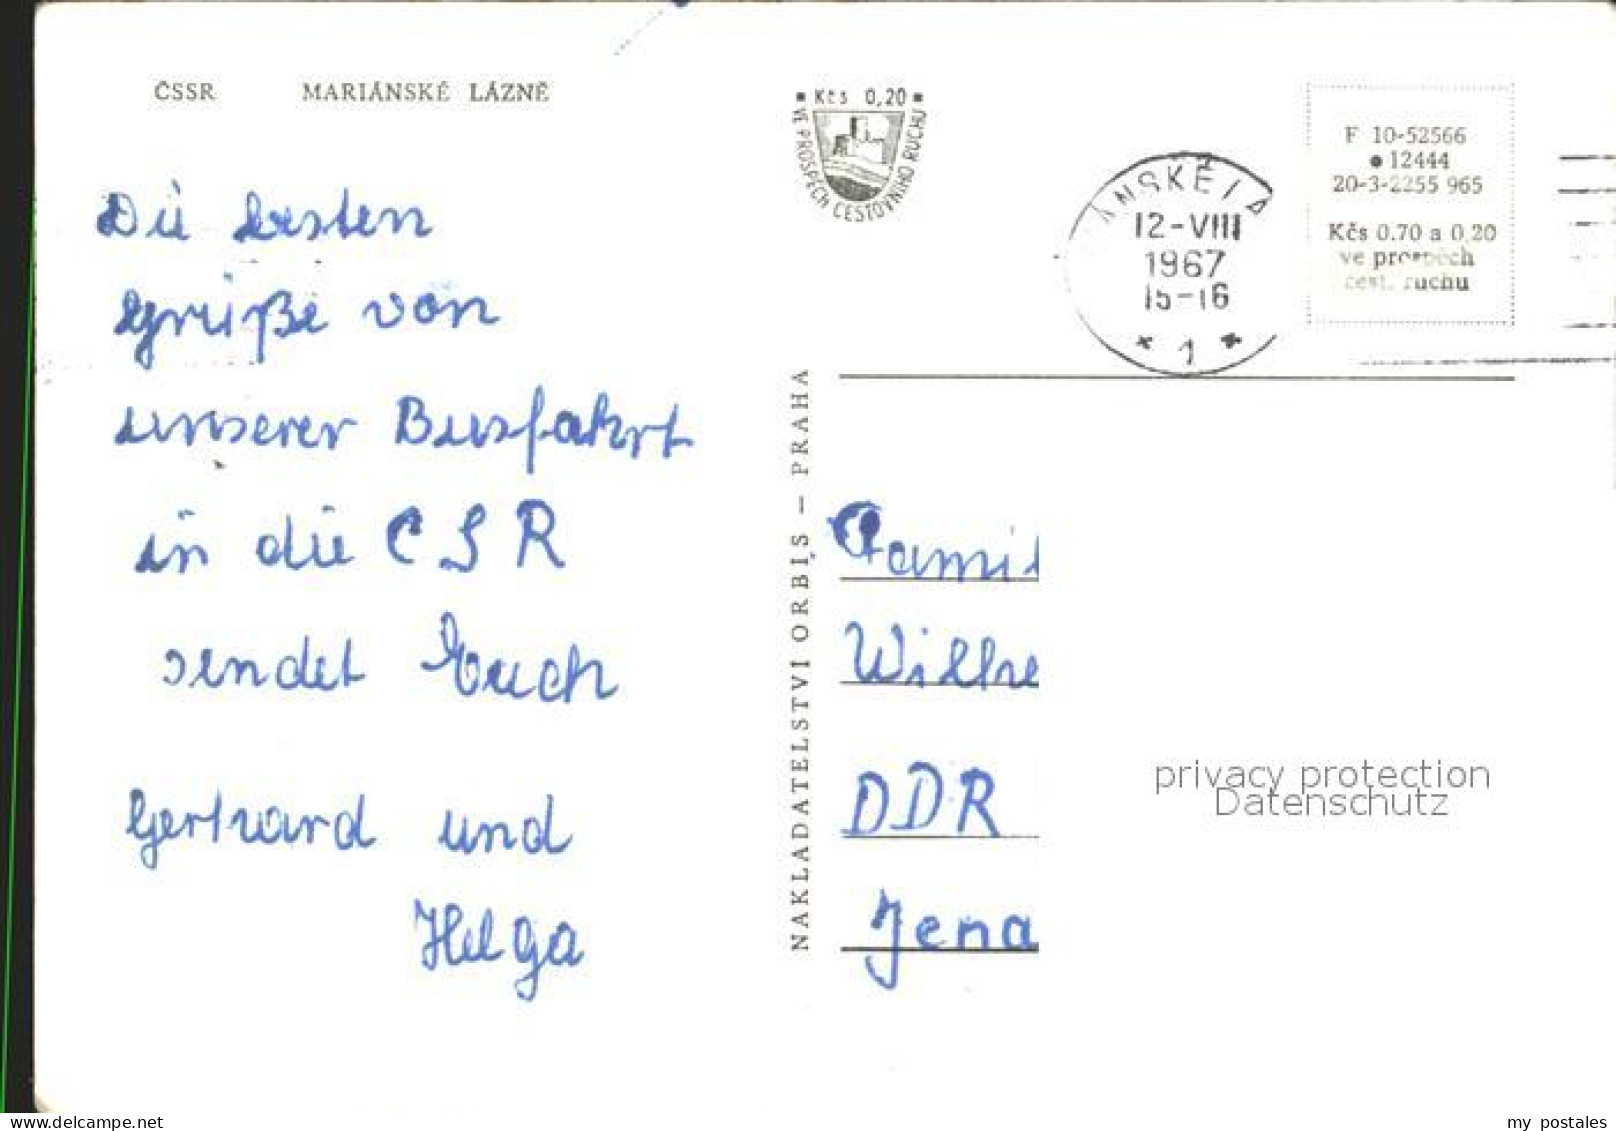 ČSSR MARIÁNSKÉ LÁZNĚ
Kčs 0,20
VE PROSPĚCH CESTOVNÍHO RUCHU
ÁNSKÉ LÁ
12-VIII
1967
15-16
* 1 *
F 10-52566
● 12444
20-3-2255 965
Kčs 0.70 a 0,20
ve prospěch
cest. ruchu
Die besten
Grüße von
unserer Busfahrt
in die CSR
sendet Euch
Gerhard und
Helga
NAKLADATELSTVÍ ORBIS — PRAHA
Famil
Wilhe
DDR
Jena
privacy protection
Datenschutz
www.delcampe.net
my_postales